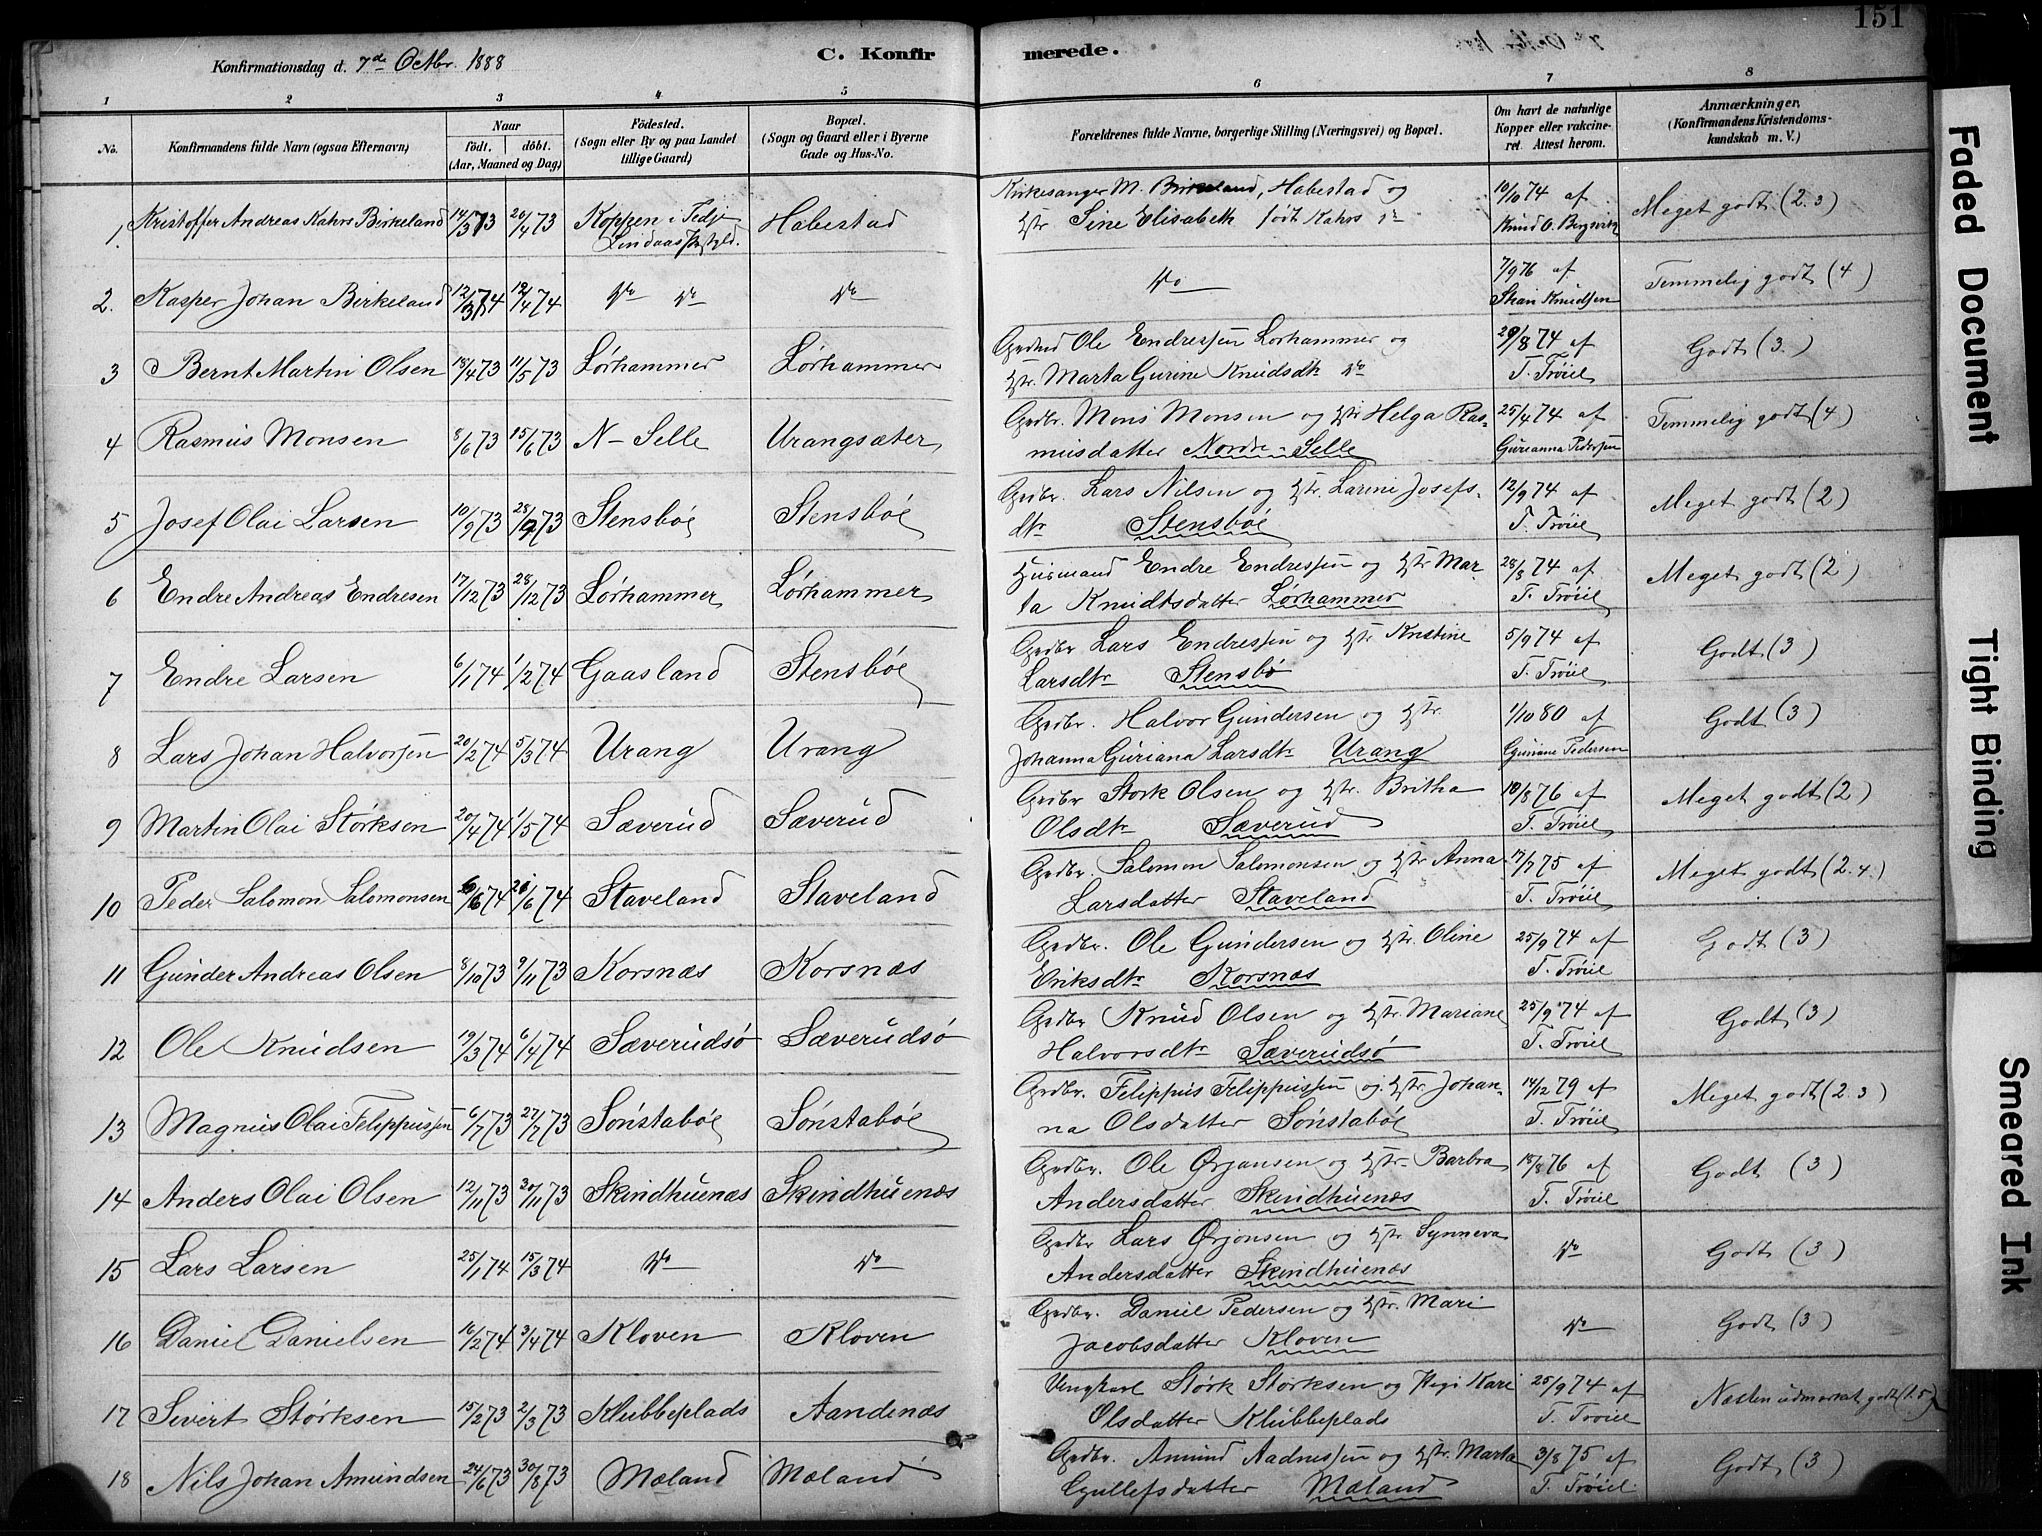 151
Konfirmationsdag d. 7de Octbr. 1888
C. Konfirmerede.
1 2 3 4 5 6 7 8
No.
Konfirmandens fulde Navn (ogsaa Efternavn)
Naar
födt. döbt.
(Aar, Maaned og Dag)
Födested.
(Sogn eller By og paa Landet
tillige Gaard)
Bopæl.
(Sogn og Gaard eller i Byerne
Gade og Hus-No.
Forældrenes fulde Navne, borgerlige Stilling (Næringsvei) og Bopæl.
Om havt de naturlige
Kopper eller vakcine-
ret. Attest herom.
Anmærkninger.
(Konfirmandens Kristendoms-
kundskab m. V.)
1. Kristoffer Andreas Kahrs Birkeland 14/3 73 20/4 73 Koppen i Fedje Habestad Kirkesanger M. Birkeland, Habestad og 10/10 74 af Meget godt (2.3)
Lindaas Hstr Sine Elisabeth født Kahrs Knud O. Bergsvik
2. Kasper Johan Birkeland 12/3 74 19/4 74 Do Do Do Do 7/9 76 af Temmelig godt (4)
Knudsen
3 Bernt Martin Olsen 18/4 73 11/5 73 Lørhammer Lørhammer Ole Endressen Lørhammer og 29/8 74 af Godt (3.)
Hstr. Marta Gurine Knudsdtr Do T. Trøiel
4 Rasmus Monsen 8/6 73 15/6 73 N-Selle Urangsæter Grdbr. Mons Monsen og Hstr Helga Ras- 25/4 74 af Temmelig godt (4)
musdatter Nordre-Selle Gurianna Pedersen
5 Josef Olai Larsen 10/9 73 28/9 73 Stensbøe Stensbøe Grdbr. Lars Nilsen og Hstr. Larine Josefs- 12/9 74 af Meget godt (2)
dtr Stensbøe T. Trøiel
6 Endre Andreas Endresen 17/12 73 28/12 73 Lørhammer Lørhammer Husmand Endre Endressen og Hstr Mar- 28/8 74 af Meget godt (2)
ta Knudtsdatter Lørhammer T. Trøiel
7 Endre Larsen 6/1 74 1/2 74 Gaasland Stensbøe Grdbr Lars Endressen og Hstr Kristine 5/9 74 af Godt (3)
Larsdtr Stensbø T. Trøiel
8 Lars Johan Halvorsen 20/2 74 5/3 74 Urang Urang Grdbr. Halvor Gundersen og Hstr. 1/10 80 af Godt (3)
Johanna Guriana Larsdtr Urang Guriane Pedersen
9 Martin Olai Størksen 20/4 74 1/5 74 Sæverud Sæverud Grdbr Størk Olsen og Hstr. Britha 10/8 76 af Meget godt (2)
Olsdtr Sæverud T. Trøiel
10 Peder Salomon Salomonsen 6/6 74 21/6 74 Staveland Staveland Grdbr. Salomon Salomonsen og Hstr Anna 17/7 75 af Meget godt (2.4.)
Larsdatter Staveland T. Trøiel
11 Gunder Andreas Olsen 8/10 73 9/11 73 Korsnæs Korsnæs Grdbr. Ole Gundersen og Hstr. Oline 25/9 74 af Godt (3)
Eriksdtr Korsnæs T. Trøiel
12 Ole Knudsen 19/3 74 6/4 74 Sæverudsø Sæverudsø Grdbr Knud Olsen og Hstr. Mariane 25/9 74 af Godt (3)
Halvorsdtr Sæverudsø T. Trøiel
13 Magnus Olai Felippussen 6/7 73 27/7 73 Sønstabøe Sønstabøe Grdbr. Felippus Felippussen og Hstr. Johan- 14/12 79 af Meget godt (2.3)
na Olsdatter Sønstabøe T. Trøiel
14 Anders Olai Olsen 12/11 73 30/11 73 Skindhuenæs Skindhuenæs Grdbr. Ole Ørjansen og Hstr. Barbra 18/8 76 af Godt (3)
Andersdatter Skindhuenæs T. Trøiel
15 Lars Larsen 25/1 74 15/3 74 Do Do Grdbr Lars Ørjansen og Hstr Synneva Do Godt (3)
Andersdatter Skindhuenæs
16 Daniel Danielsen 16/2 74 3/4 74 Kloven Kloven Grdbr. Daniel Pedersen og Hstr. Mari Do Godt (3)
Jacobsdatter Kloven
17 Sivert Størksen 15/2 73 2/3 73 Klubbeplads Aandenæs Ungkarl Størk Størksen og Pige Kari 25/9 74 af Næsten udmærket godt (1.5)
Olsdatter Klubbeplads T. Trøiel
18 Nils Johan Amundsen 24/6 73 30/8 73 Mæland Mæland Grdbr. Amund Aadnessen og Hstr. Marta 3/8 75 af Godt (3)
Gullefsdatter Mæland T. Trøiel
Faded Document
Tight Binding
Smeared Ink